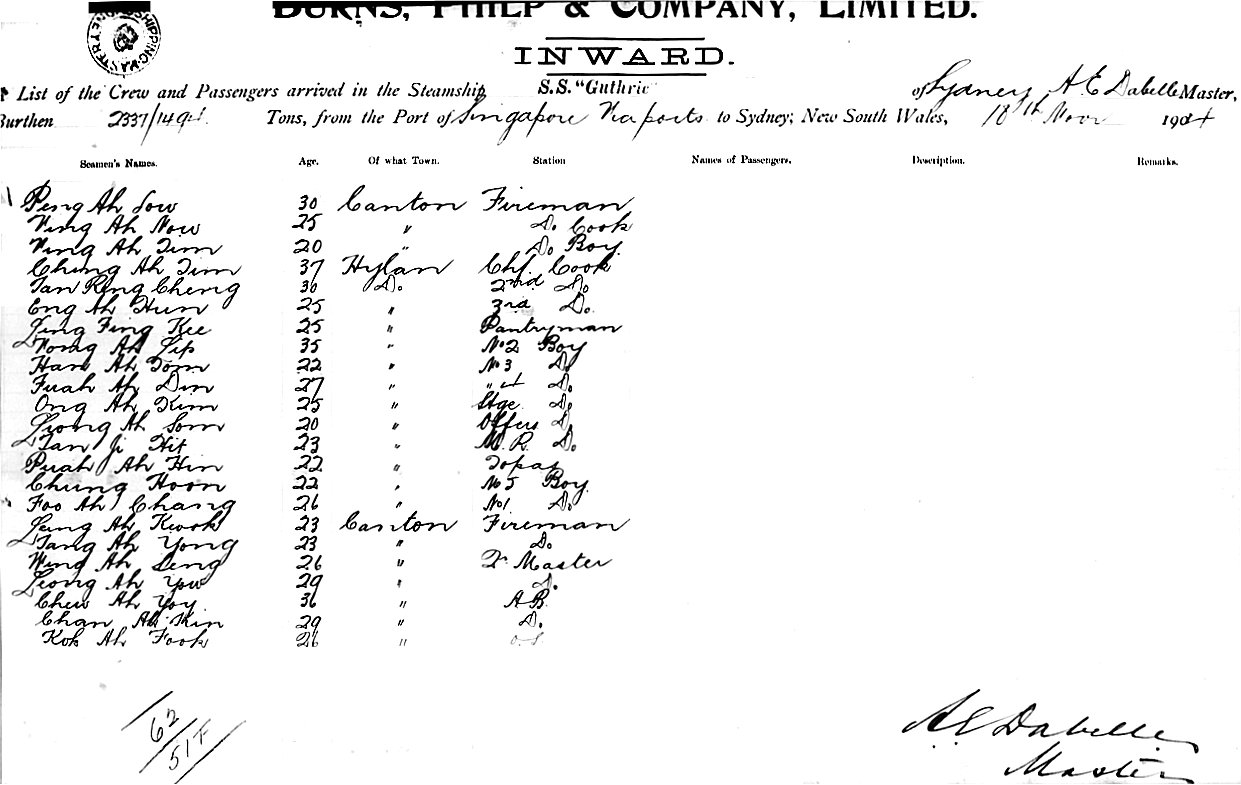 BURNS, PHILP & COMPANY, LIMITED.
INWARD.
SHIPPING MASTER
List of the Crew and Passengers arrived in the Steamship S.S. "Guthrie" of Sydney A E Dabelle Master,
Burthen 2337/1494 Tons, from the Port of Singapore Via ports to Sydney, New South Wales, 18th Nov 1904
Seamen's Names. Age. Of what Town. Station Names of Passengers. Description. Remarks.
Peng Ah Sow 30 Canton Fireman
Wing Ah Now 25 " Do. Cook
Wing Ah Tim 20 " Do. Boy
Ching Ah Tim 37 Hylan Chf. Cook
Tan Ring Cheng 30 Do. 2nd Do.
Eng Ah Hun 25 " 3rd Do.
Ling Fing Kee 25 " Pantryman
Wong Ah Sip 35 " No 2 Boy
Han Ah Tom 22 " No 3 Do
Fuah Ah Din 27 " " 4 Do.
Ong Ah Kim 25 " Stge Do.
Leong Ah Som 20 " Offers Do
Tan Ji Hit 23 " M. R. Do.
Puah Ah Hin 22 " Topas
Chung Hoon 22 " No 5 Boy
Foo Ah Chang 26 " No 1 Do.
Leung Ah Kwok 23 Canton Fireman
Tang Ah Yong 23 " Do.
Wing Ah Seng 26 " Qr Master
Leong Ah You 29 " Do.
Chew Ah Yoy 36 " A.B.
Chan Ah Kin 29 " Do.
Kok Ah Fook 26 " O.S.
62
51
A E Dabelle
Master